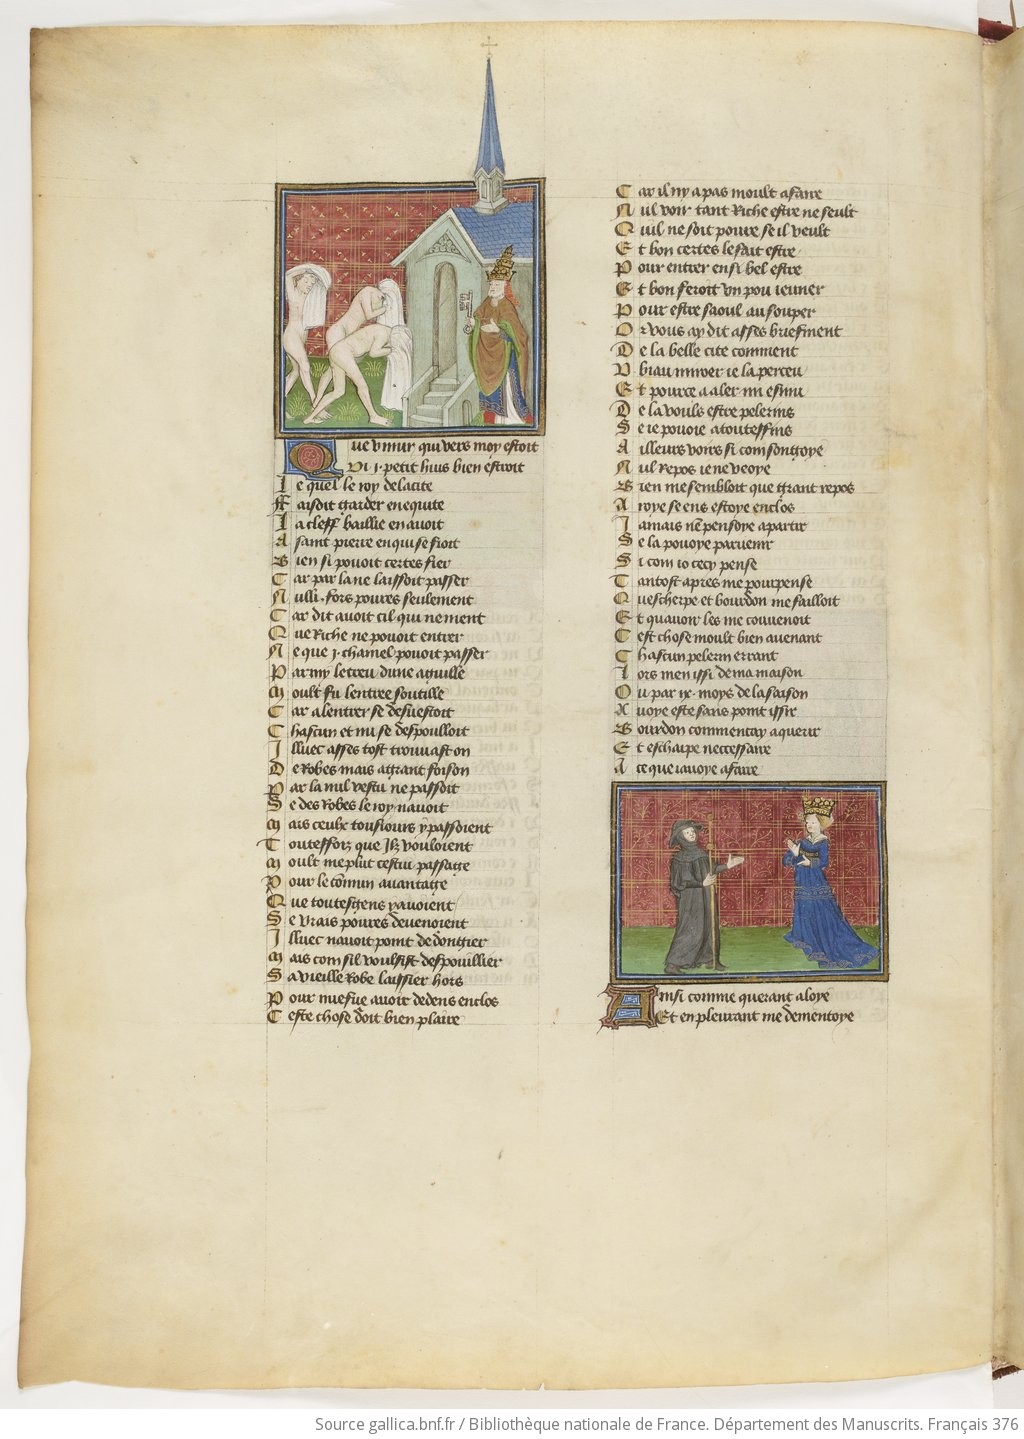 Que v mur qui vers moy estoit
Vi .j. petit huis bien estroit
Le quel le roy de la cite
ffaisoit garder en equite
La cleff baillie en avoit
A saint pierre en qui se fioit
Bien si povoit certes fier
Car par la ne laissoit passer
Nulli fors povres seulement
Car dit avoit cil qui ne ment
Que Riche ne povoit entrer
Ne que .j. chamel povoit passer
Parmy le treu dune aguille
Moult fu lentree soutille
Car a lentrer se desvestoit
Chascun et nu se despoulloit
Illuec asses tost trouvast on
De Robes mais a grant foison
Par la nul vestu ne passoit
Se des Robes le roy navoit
Mais ceulx tousiours y passoient
Toutesfoiz que Ilz vouloient
Moult me plut cestui passage
Pour le commun avantage
Que toutes gens y avoient
Se vrais povres devenoient
Illuec navoit point de dongier
Mais com sil voulsist despouillier
Sa vieille Robe laissier hors
Pour nuefue avoir dedens enclos
Ceste chose doit bien plaire
Car il ny a pas moult a faire
Nul voir tant Riche estre ne seult
Quil ne soit povre se il veult
Et bon certes le fait estre
Pour entrer en si bel estre
Et bon feroit vn pou ieuner
Pour estre saoul au souper
Or vous ay dit asses briefment
De la belle cite comment
V biau miroer ie la perceu
Et pource a aler mi esmu
De la vouls estre pelerins
Se ie povoie a toutes fins
Ailleurs voirs si com songoye
Nul Repos ie ne veoye
Bien me sembloit que grant repos
Aroye se ens estoye enclos
Jamais nen pensoye a partir
Se la povoye parvenir
Si com io cecy pense
Tantost apres me pourpense
Quescherpe et bourdon me failloit
Et quavoir les me convenoit
Cest chose moult bien avenant
Chascun pelerin errant
Lors men issi de ma maison
Ou par ix. moys de la saison
Avoye este sans point issir
Bourdon commencay a querir
Et eschaipe neccessaire
A ce que iavoye a faire
Ainsi comme querant aloye
Et en pleurant me dementoye
Source gallica.bnf.fr / Bibliothèque nationale de France. Département des Manuscrits. Français 376